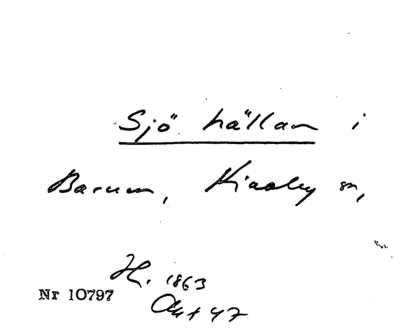 Sjö hällan i
Barum, Kiaby sn,
H. 1863
Nr 10797
Akt 47